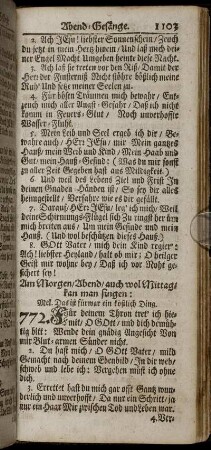 Abend-Gesänge. 1103
2. Ach JEsu! liebster Sonnenschein/ Zeuch
du jetzt in mein Hertz hinein/ Und laß mich deiner
Engel Macht Umgeben heinte diese Nacht.
3. Ach laß sie treten vor den Riß/ Damit der
Herr der Finsterniß Nicht stöhre böslich meine
Ruh/ Und setz meine Seelen zu.
4. Für bösen Träumen mich bewahr/
mich aller Angst Gefahr/ Daß ich nicht
komm in Feuers-Glut/ Noch unverhofft
Wasser-Fluht.
5. Mein Leib und Seel ergeb ich dir/
auch/ HErr JEsu/ mir Mein gantzes
Hauß/ mein Weib und Kind/ Mein Haab und
Gut/ mein Gesind: (Was du mir sonst
zu aller Zeit Gegeben hast aus Mildigkeit.)
6. Und weil des Lebens Ziel und Frist In
deinen Gnaden-Händen ist/ So sey dir alles
Versahre wie es dir gefällt.
7. Darauf JEsu/ leg' ich mich/ Weil
deine Schirmungs-Flügel sich Zu umgeben
mich um mein Gesinde und mein
Hauß. (Und wol beschützen dieses Hauß.)
8. GOtt Vater/ mich dein Kind regier:
Ach! liebster Heyland/ halt ob mir: O heilger
Geist mir wohne bey/ Daß ich vor Noht gesichert
sey!
Am Morgen/ Abend/ auch wol Mittag/
kan man singen:
Mel. Das ist mir ein köstlich Ding.
772. Für deinem Thron tret' ich hiemit/
O Gott/ und dich demühtig
bitt: Wend dein gnädig Angesicht Von
mir Blut-armen Sünder nicht.
2. Du hast mich/ O GOtt Vater/ mild
Gemacht nach deinem Ebenbild/ In dir web/
schweb/ und lebe ich: Vergehen müst ich ohne
dich.
3. Errettet hast du mich gar offt Gantz wunderlich
und unverhofft/ Da nur ein Schritt/ ja
nur ein Haar Mir zwischen Tod und Leben war.
4. Ver-